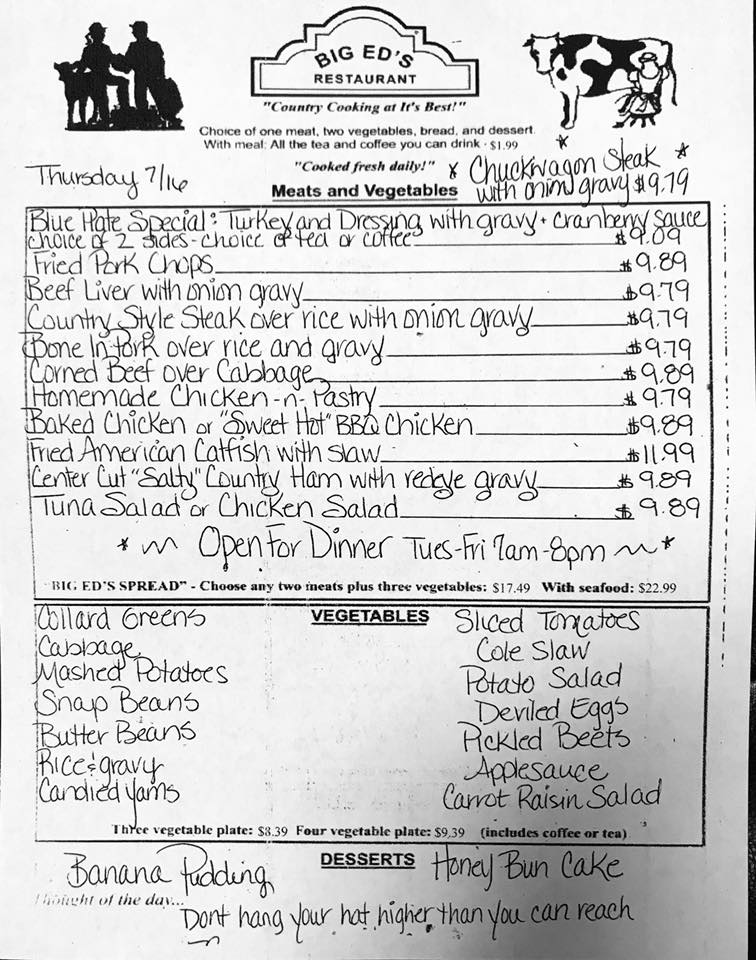 BIG ED'S
RESTAURANT
"Country Cooking at It's Best!"
Choice of one meat, two vegetables, bread, and dessert.
With meal: All the tea and coffee you can drink - $1.99
"Cooked fresh daily!"
* Chuckwagon Steak *
with onion gravy $9.79
Thursday 7/16
Meats and Vegetables
Blue Plate Special: Turkey and Dressing with gravy + cranberry sauce
choice of 2 sides - choice of tea or coffee $9.09
Fried Pork Chops $9.89
Beef Liver with onion gravy $9.79
Country Style Steak over rice with onion gravy $9.79
Bone In Pork over rice and gravy $9.79
Corned Beef over Cabbage $9.89
Homemade Chicken-n-Pastry $9.79
Baked Chicken or "Sweet Hot" BBQ Chicken $9.89
Fried American Catfish with slaw $11.99
Center Cut "Salty" Country Ham with redeye gravy $9.89
Tuna Salad or Chicken Salad $9.89
* ~ Open For Dinner Tues-Fri 7am-8pm ~ *
"BIG ED'S SPREAD" - Choose any two meats plus three vegetables: $17.49 With seafood: $22.99
VEGETABLES
Collard Greens
Cabbage
Mashed Potatoes
Snap Beans
Butter Beans
Rice & gravy
Candied Yams
Sliced Tomatoes
Cole Slaw
Potato Salad
Deviled Eggs
Pickled Beets
Applesauce
Carrot Raisin Salad
Three vegetable plate: $8.39 Four vegetable plate: $9.39 (includes coffee or tea)
DESSERTS
Banana Pudding Honey Bun Cake
Thought of the day...
Dont hang your hat higher than you can reach